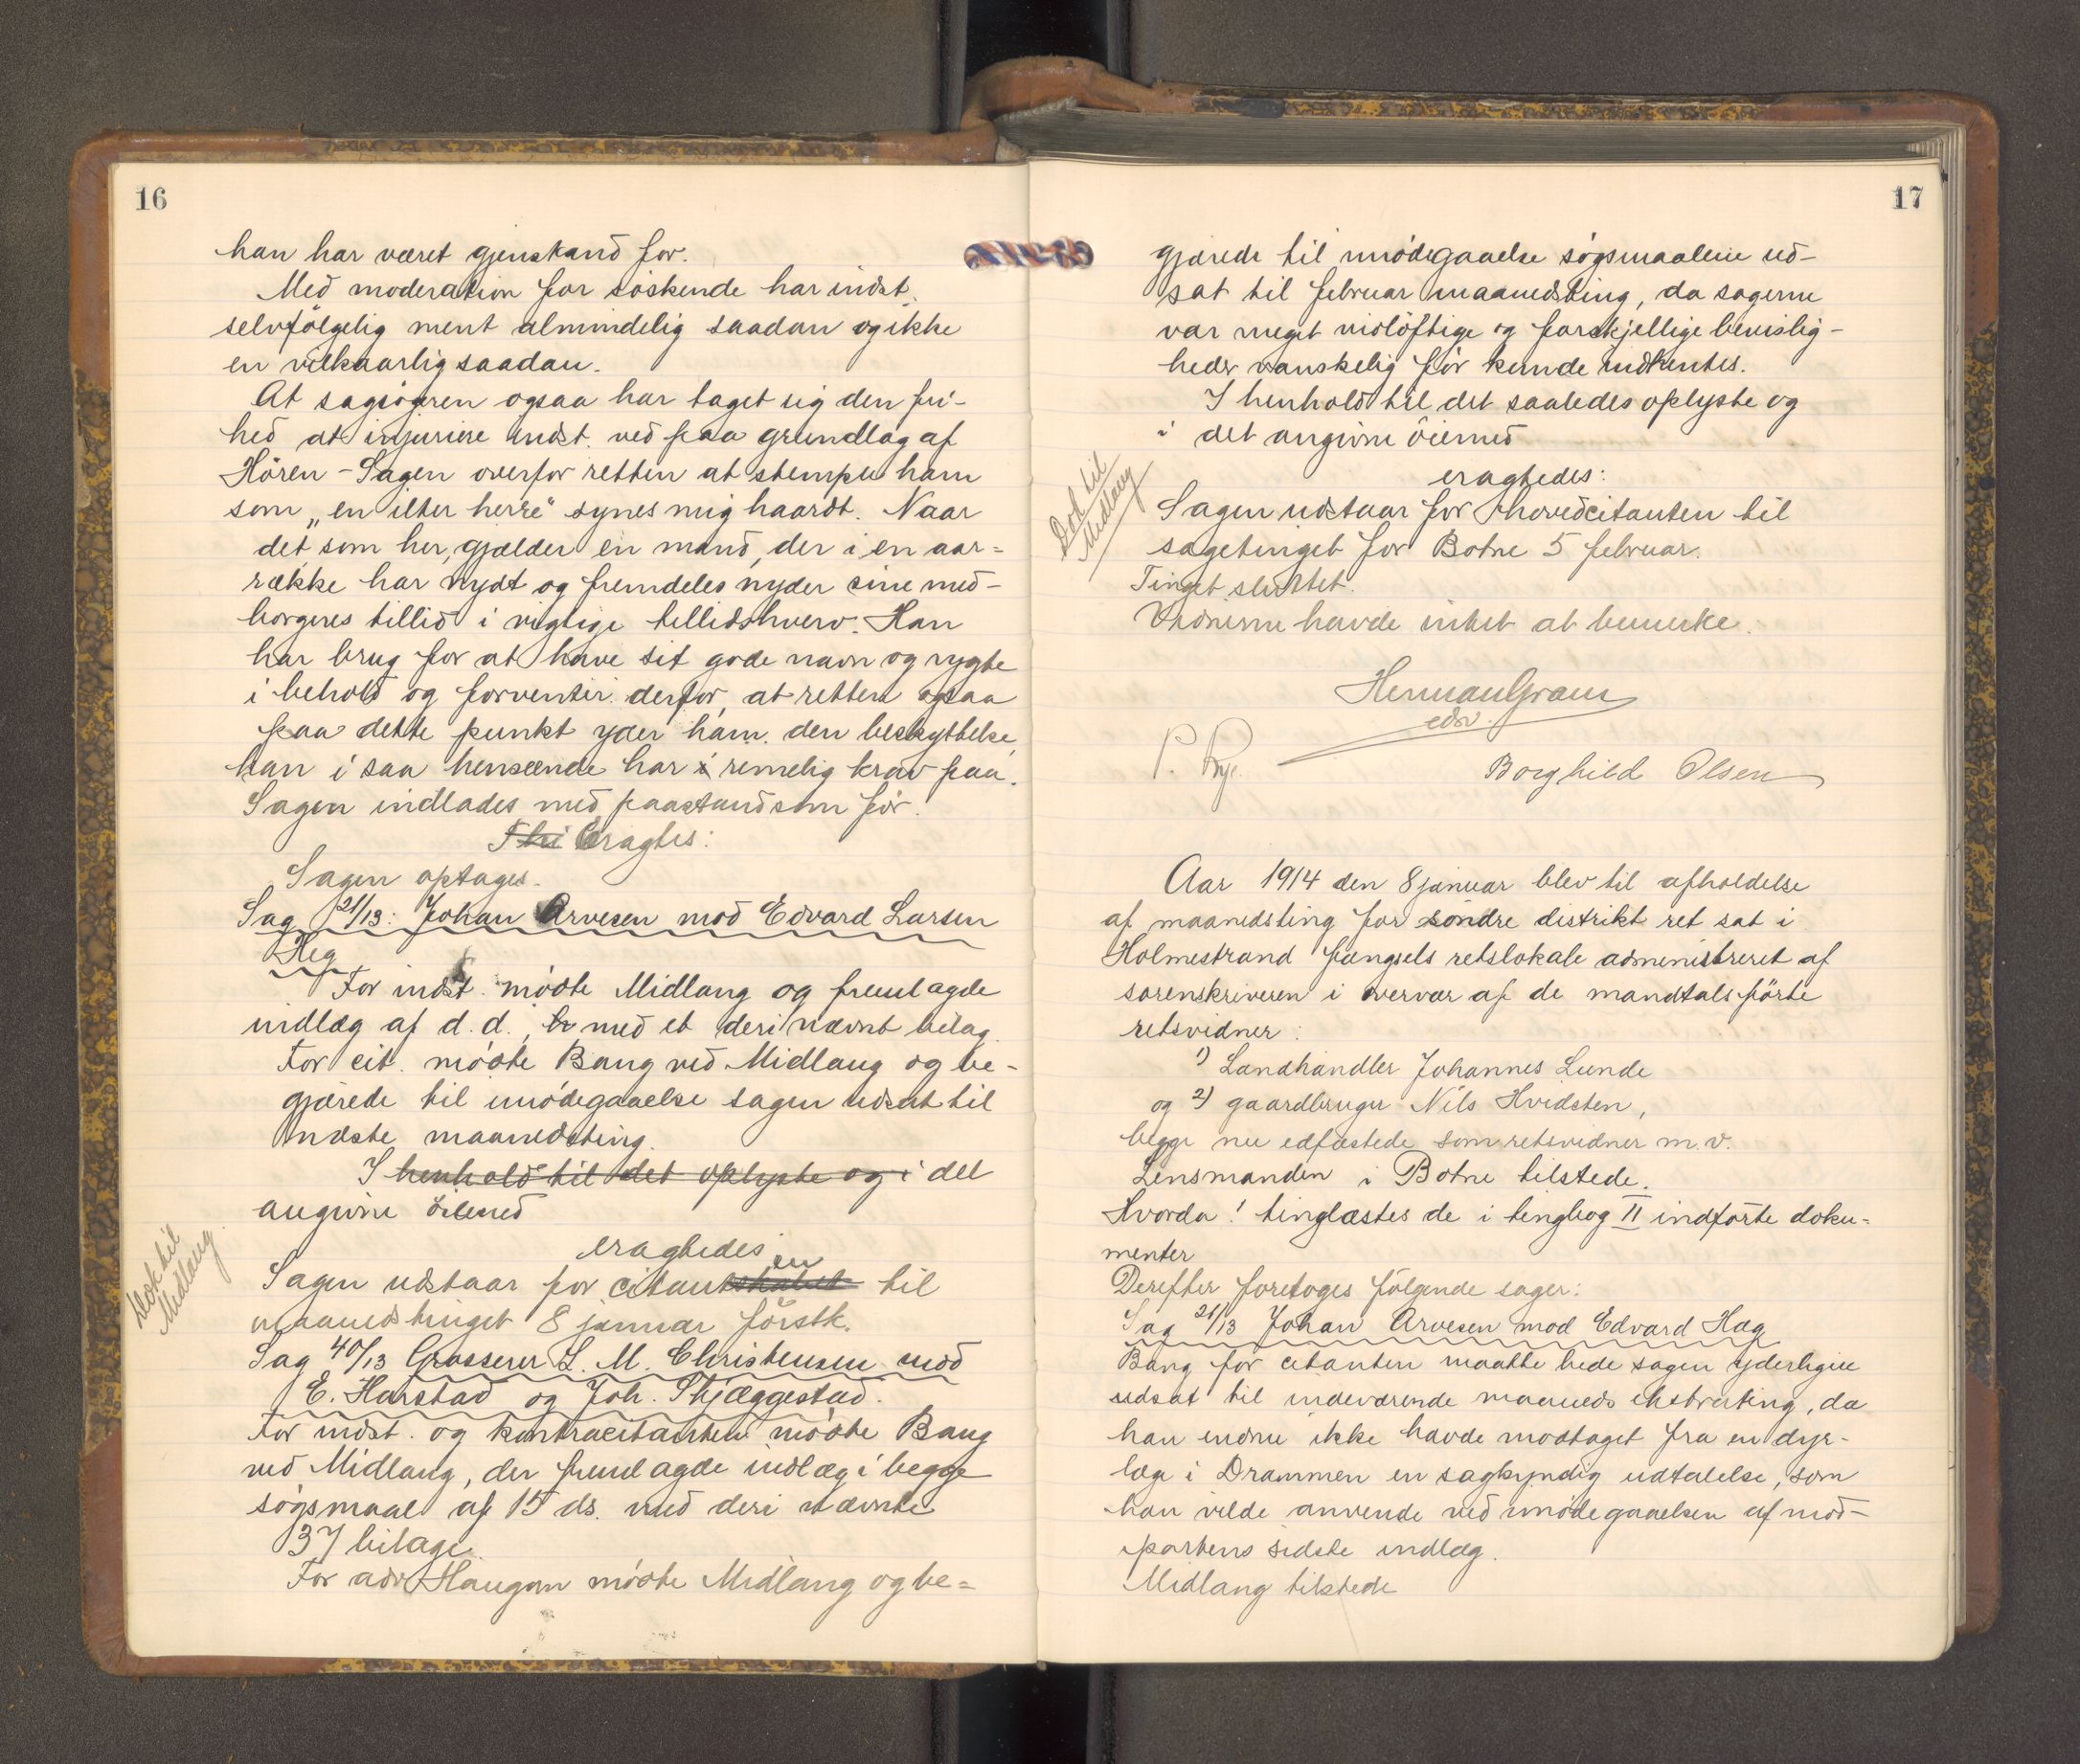 16
han har været gjenstand for.
Med moderation for søskende har indst.
selvfölgelig ment almindelig saadan og ikke
en vilkaarlig saadan.
At sagsøgeren ogsaa har taget sig den fri-
hed at injuriere indst. ved paa grundlag af
Hören-Sagen overfor retten at stemple ham
som „en ilter herre" synes mig haardt. Naar
det som her, gjælder en mand, der i en aar=
række har nydt og fremdeles nyder sine med-
borgeres tillid i vigtige tillidshverv. Han
har brug for at have sit gode navn og rygte
i behold og forventer derfor, at retten ogsaa
paa dette punkt yder ham den beskyttelse,
han i saa henseende har i rimelig krav paa.
Sagen indlades med paastand som før.
Thi Eragtes:
Sagen optages.
Sag 21/13: Johan Arvesen mod Edvard Larsen
Heg
For indst. mødte Midlang og fremlagde
indlæg af d.d., med et deri nævnt bilag.
For cit. mødte Bang ved Midlang og be-
gjærede til imödegaaelse sagen udsat til
næste maanedsting.
I henhold til det oplyste og i det
angivne øiemed
eragtedes
Sagen udstaar for citantskabet en til
maanedstinget 8 januar förstk.
Dok til
Midlang
Sag 40/13 Grosserer L. M. Christensen mod
E. Harstad og Joh. Skjæggestad.
For indst. og kontracitanten mødte Bang
ved Midlang, der fremlagde indlæg i begge
søgsmaal af 15 ds. med deri nævnte
37 bilage.
For adv Haugen mødte Midlang og be=
17
gjærede til imødegaaelse søgsmaalene ud-
sat til februar maanedsting, da sagerne
var meget vidløftige og forskjellige bevislig-
heder vanskelig før kunde indhentes.
I henhold til det saaledes oplyste og
i det angivne øiemed
eragtedes:
Sagen udstaar for hovedcitanten til
sagetinget for Botne 5 februar.
Dok til
Midlang
Tinget sluttet.
Vidnerne havde intet at bemerke.
Herman Gram
edv.
P. Rye.
Borghild Olsen
Aar 1914 den 8 januar blev til afholdelse
af maanedsting for söndre distrikt ret sat i
Holmestrand fængsels retslokale administreret af
sorenskriveren i overvær af de mandtalsførte
retsvidner:
1) Landhandler Johannes Lunde
og 2) gaardbruger Nils Hvidsten,
begge nu edfæstede som retsvidner m.v.
Lensmanden i Botne tilstede.
Hvorda! tinglæstes de i tingbog II indførte doku=
menter
Derefter foretoges følgende sager:
Sag 21/13 Johan Arvesen mod Edvard Hæg
Bang for citanten maatte bede sagen yderligere
udsat til indeværende maaneds ekstrating, da
han endnu ikke havde modtaget fra en dyr-
læge i Drammen en sagkyndig udtalelse, som
han vilde anvende ved imødegaaelsen af mod-
partens sidste indlæg.
Midlang tilstede